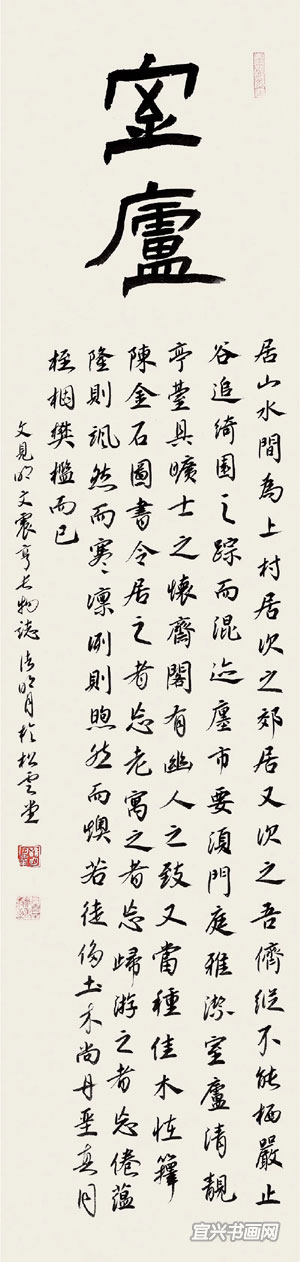 室廬
居山水間為上村居次之郊居又次之吾儕縱不能栖巖止
谷追綺園之踪而混迹廛市要須門庭雅潔室廬清靚
亭臺具曠士之懷齋閣有幽人之致又當種佳木怪籜
陳金石圖書令居之者忘老寓之者忘歸游之者忘倦蘊
隆則颯然而寒凜冽則煦然而燠若徒侈土木尚丹堊真同
桎梏樊檻而已
文見明文震亨長物誌 明月於松雲堂
宜兴书画网